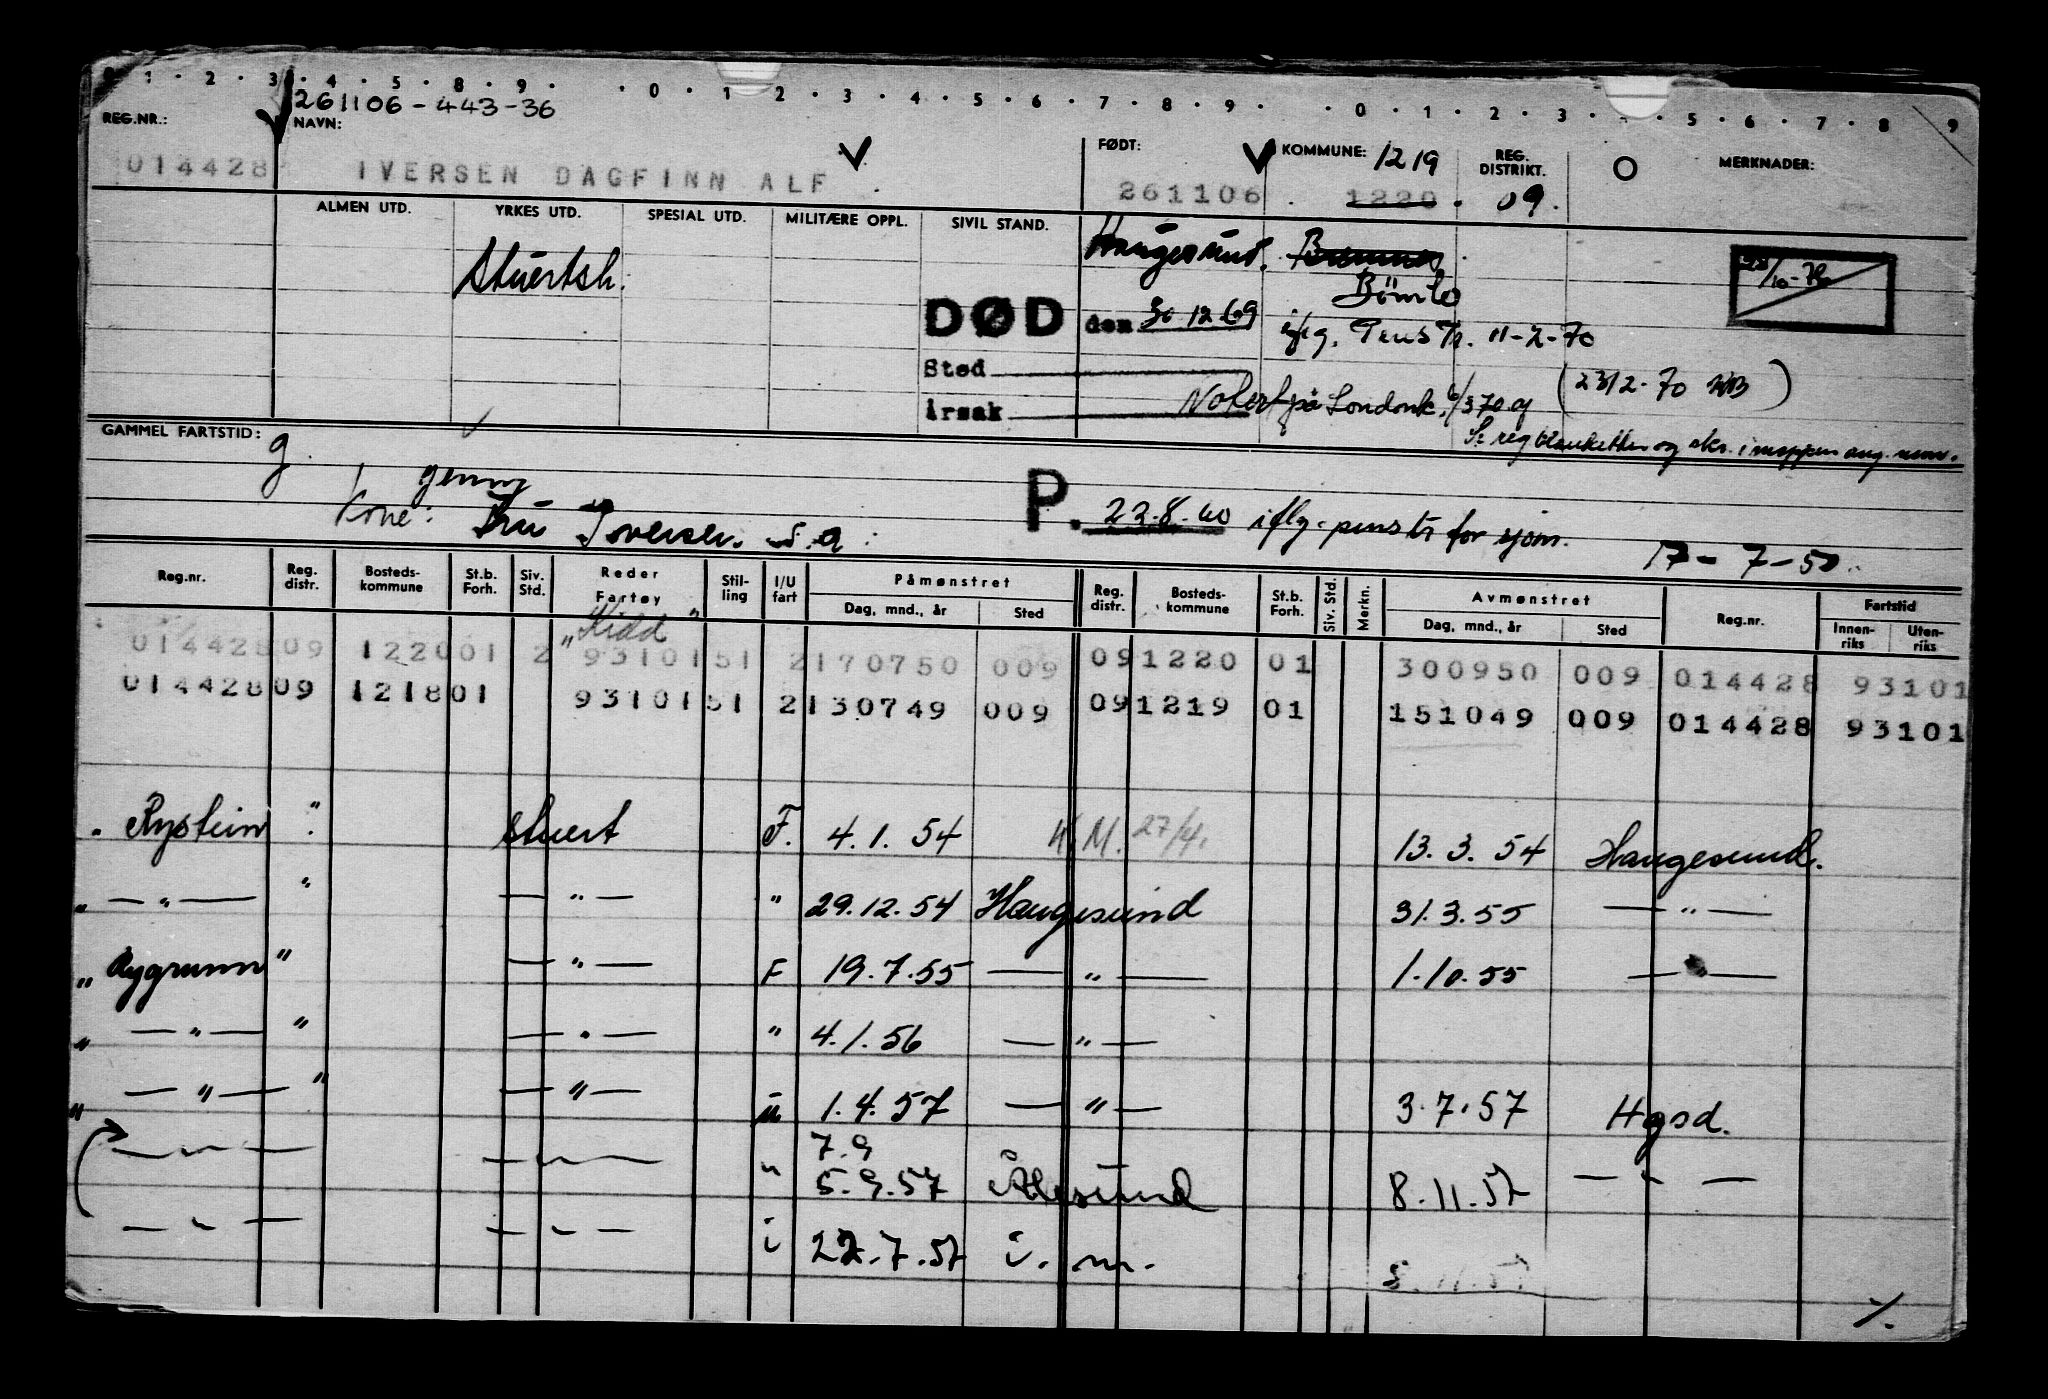 0 1 · 2 · 3 · 4 · 5 · 8 · 9 · · 0 · 1 · 2 · 3 · 4 · 5 · 6 · 7 · 8 · 9 · · 0 · 1 · 2 · 3 · · 5 · 6 · 7 · 8 9
261106-443-36
REG.NR.: NAVN: FØDT: KOMMUNE: 1219 REG. DISTRIKT. O MERKNADER:
014428 IVERSEN DAGFINN ALF 261106 1220 09.
ALMEN UTD. YRKES UTD. SPESIAL UTD. MILITÆRE OPPL. SIVIL STAND.
Stuertsk. Haugesund. Bremnes
Bömlo
DØD den 30 12 69
iflg. Penstr. 11-2-70
Sted
(23/2-70)
årsak Notert på Londonk.
GAMMEL FARTSTID: g.
S: reg blanketten og i mappen ang.
Kone: Iversen. s.a.
P. 22.8.60 iflg. penstr for sjøm. 17-7-50.
Reg.nr. Reg. distr. Bosteds-kommune St.b. Forh. Siv. Std. Reder Fartøy Stil-ling I/U fart Påmønstret Dag, mnd., år Sted Reg. distr. Bosteds-kommune St.b. Forh. Siv. Std. Merkn. Avmønstret Dag, mnd., år Sted Reg.nr. Fartstid Innen-riks Uten-riks
"Kidd"
014428 09 1220 01 2 93101 51 2 170750 009 09 1220 01 300950 009 014428 93101
014428 09 1218 01 93101 51 2 130749 009 09 1219 01 151049 009 014428 93101
Rystein " stuert F. 4.1.54 H.M. 27/4. 13.3.54 Haugesund.
" — " — " — " — " 29.12.54 Haugesund 31.3.55 — " —
" Rygrunn " — " — F 19.7.55 — " — 1.10.55 — " —
" — " — " — " — " 4.1.56 — " —
" — " — " — " — u 1.4.57 — " — 3.7.57 Hgsd.
7.9
— " — — " — " 5.9.57 Ålesund 8.11.57 — " —
— " — — " — i 22.7.57 i. m. 5.11.57